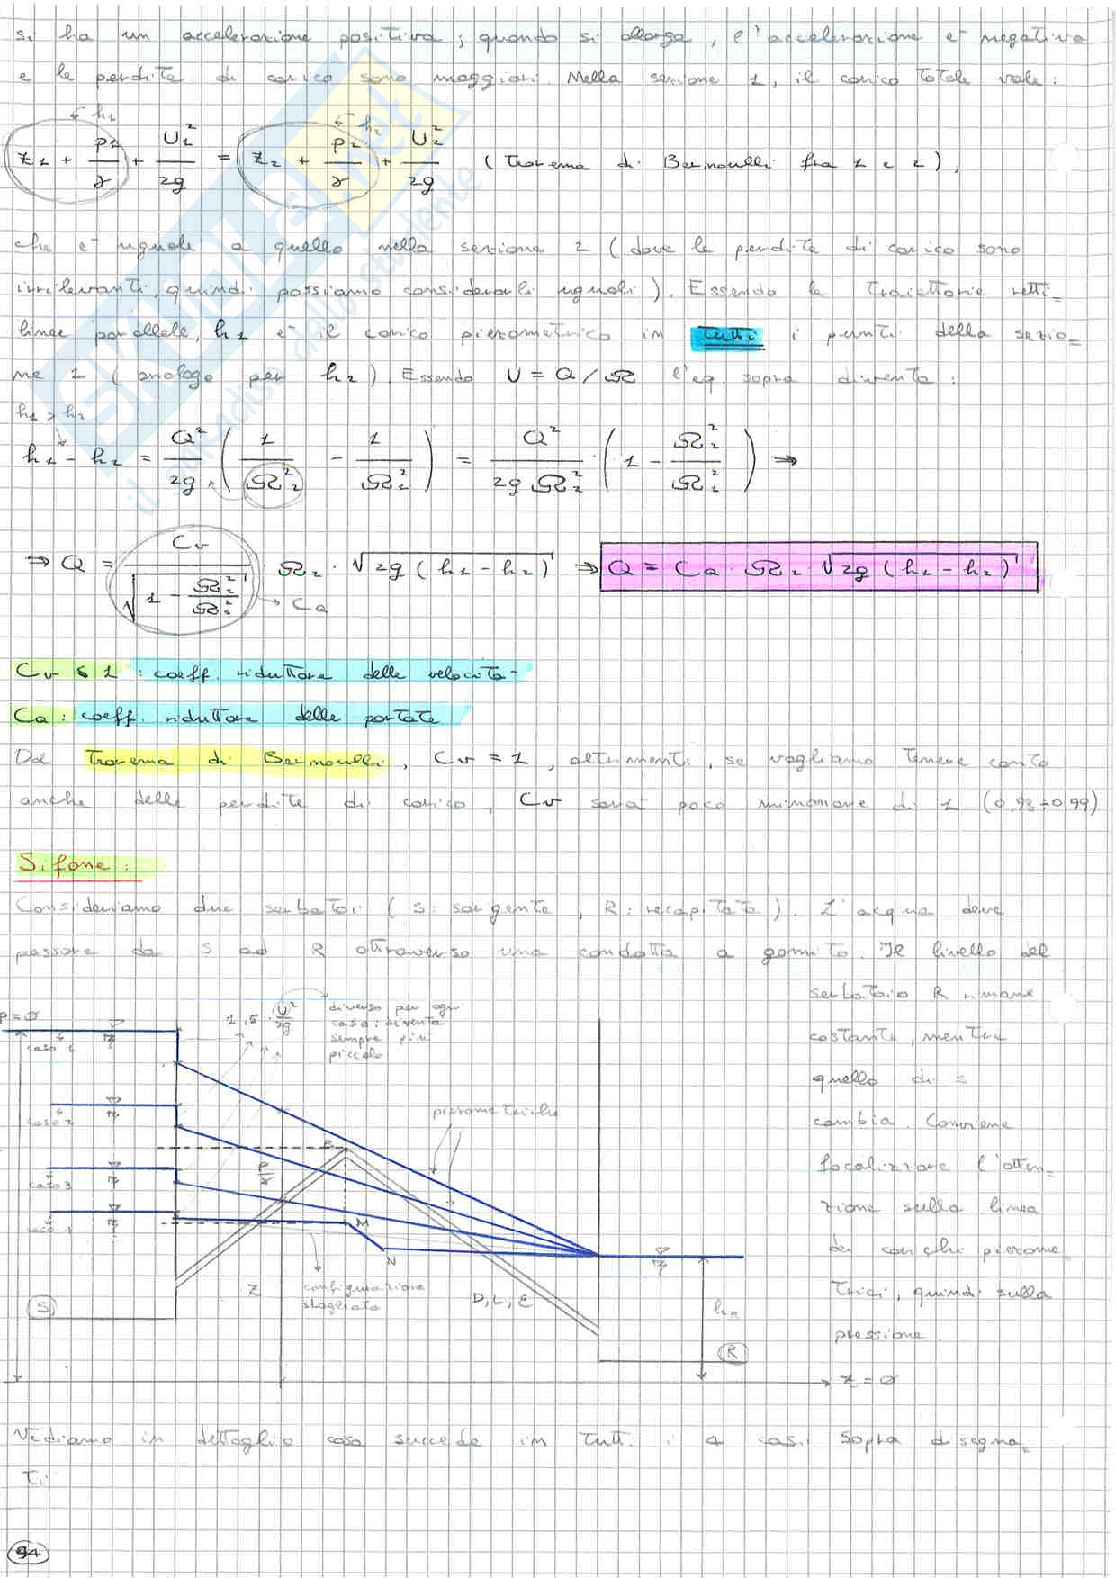 si ha un accelerazione positiva; quando si allarga, l'accelerazione è negativa
e le perdite di carico sono maggiori. Nella sezione 1, il carico totale vale:
← h₁
← h₂
z₁ + p₁/γ + U₁²/2g = z₂ + p₂/γ + U₂²/2g (Teorema di Bernoulli fra 1 e 2),
che è uguale a quello nella sezione 2 (dove le perdite di carico sono
irrilevanti, quindi possiamo considerarli uguali). Essendo le traiettorie retti=
linee parallele, h₁ è il carico piezometrico in tutti i punti della sezio=
ne 1 (analogo per h₂). Essendo U = Q/Ω l'eq. sopra diventa:
h₁ > h₂
h₁ - h₂ = Q²/2g · (1/Ω₂² - 1/Ω₁²) = Q²/2gΩ₂² · (1 - Ω₂²/Ω₁²) ⇒
⇒ Q = Cv/√(1 - Ω₂²/Ω₁²) Ω₂ · √2g (h₁ - h₂) ⇒ Q = Cq · Ω₂ · √2g (h₁ - h₂)
→ Cq
Cv ≤ 1: coeff. riduttore delle velocità
Cq: coeff. riduttore delle portate
Dal Teorema di Bernoulli, Cv = 1, altrimenti, se vogliamo tenere conto
anche delle perdite di carico, Cv sarà poco minore di 1 (0,93÷0,99)
Sifone:
Consideriamo due serbatoi (S: sorgente, R: recapitate). L'acqua deve
passare da S ad R attraverso una condotta a gomito. Il livello del
serbatoio R rimane
costante, mentre
quello di S
cambia. Conviene
focalizzare l'atten-
zione sulla linea
dei carichi piezome
trici, quindi sulla
pressione
P = ∅
caso 1
caso 2
caso 3
caso 4
1,5 · U²/2g
diverso per ogni
caso: diventa
sempre più
piccolo
piezometriche
P/γ
M
N
Z
configurazione
D, L, ε
S
hR
R
z = ∅
Vediamo in dettaglio cosa succede in tutti i 4 casi sopra disegna=
ti:
94